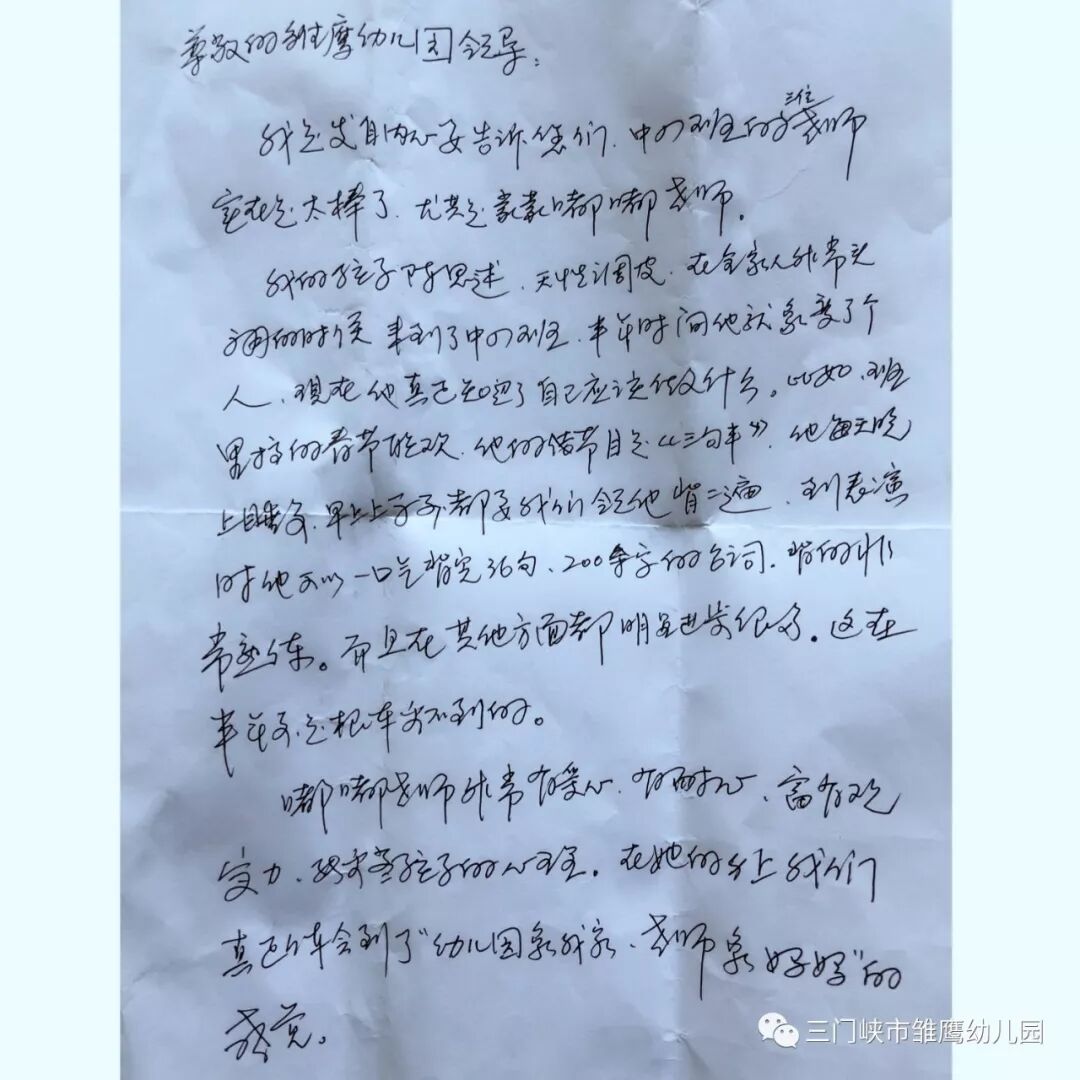 尊敬的雏鹰幼儿园领导：
三位
我是发自内心要告诉您们，中(1)班的老师
实在是太棒了，尤其是豪豪嘟嘟老师。
我的孩子陈思述，天性调皮，在全家人非常头
痛的时候来到了中(1)班，半年时间他就象变了个
人，现在他真正知道了自己应该做什么。比如，班
里搞的春节联欢，他的节目是《三句半》，他每天晚
上睡前，早上上学前都要我们领他背二遍，到表演
时他可以一口气背完36句、200余字的台词，背的非
常熟练。而且在其他方面都明显进步很多。这在
半年前是根本办不到的。
嘟嘟老师非常有爱心，有耐心，富有观
察力，善抓孩子的心理。在她的身上我们
真正体会到了"幼儿园象我家，老师象妈妈"的
感觉。
三门峡市雏鹰幼儿园